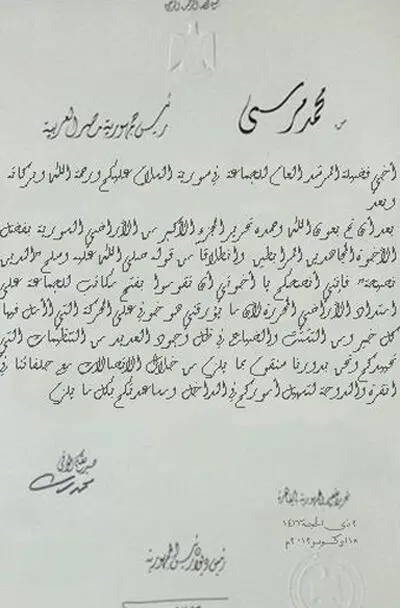 من
محمد مرسى
رئيس جمهورية مصر العربية
أخي فضيلة المرشد العام للجماعة في سورية السلام عليكم ورحمة الله وبركاته
وبعد
بعد أن تم بعون الله وحمده تحرير الجزء الأكبر من الأراضي السورية بفضل
الأخوة المجاهدين المرابطين وانطلاقا من قوله صلى الله عليه وسلم "الدين
نصيحة" فإنني أنصحكم يا أخوتي أن تقوموا بفتح مكاتب للجماعة على
امتداد الأراضي المحررة لأن ما يؤرقني هو خوفي على الحركة التي الأمل فيها
كل خير من التشتت والضياع في ظل وجود العديد من التنظيمات التي
تحيط بكم ونحن بدورنا سنقوم بما يلزم من خلال الاتصالات مع حلفائنا في
أنقرة والدوحة لتسهيل أموركم في الداخل ومساعدتكم بكل ما يلزم
رئيس ديوان رئيس الجمهورية
٢ ذي الحجة ١٤٣٣هـ
١٨ أوكتوبر ٢٠١٢م